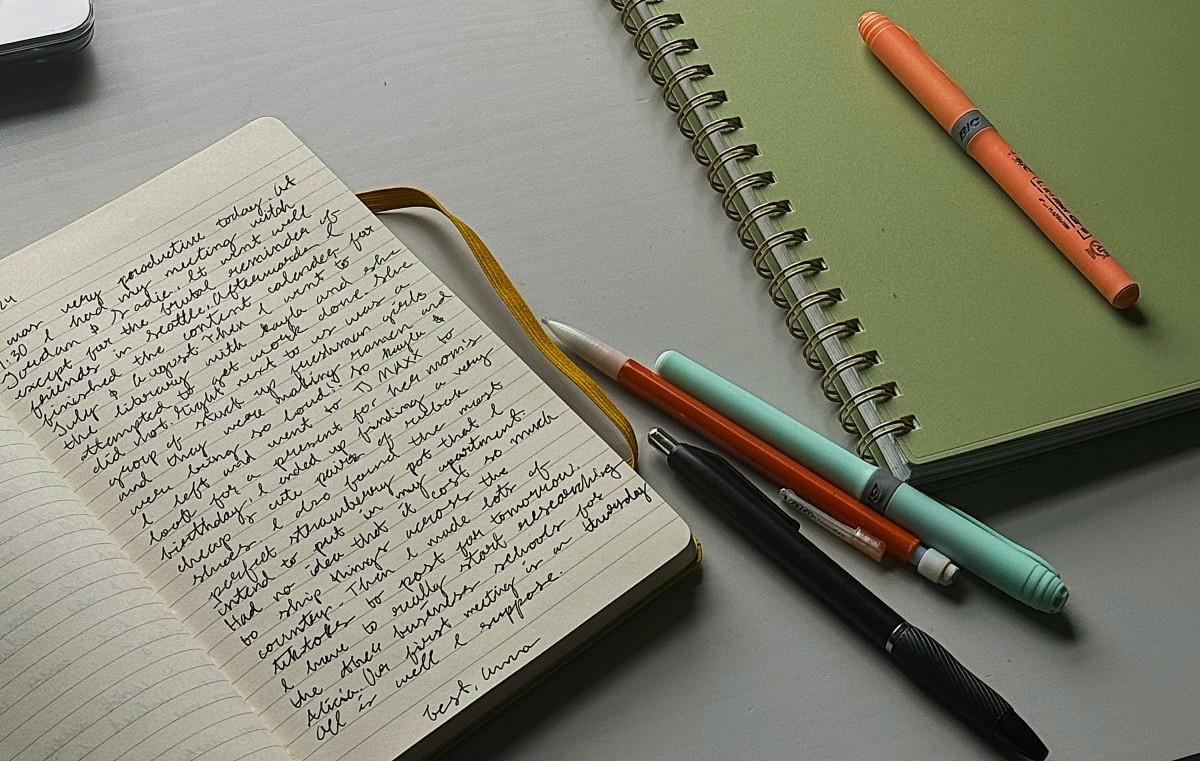 24
was very productive today. At
1:30 I had my meeting with
Jourdan & Sadie. It went well
except for the brutal reminder of
friends in seattle. Afterwards I
finished the content calender for
July & August. Then I went to
the library with Kayla and she
attempted to get work done. She
did not. Right next to us was a
group of stuck up freshman girls
and they were making ramen and
were being so loud!! so Kayla &
I left and went to TJ MAXX to
look for a present for her mom's
birthday. I ended up finding a very
cheap & cute pair of reebok
slides. I also found the most
perfect strawberry pot that I
intend to put in my apartment.
Had no idea that it cost so much
to ship things across the
country. Then I made lots of
tiktoks to post for tomorrow.
I have to really start researching
the other business schools for
Alicia. Our first meeting is on thursday
All is well I suppose.
best, anna
BIC